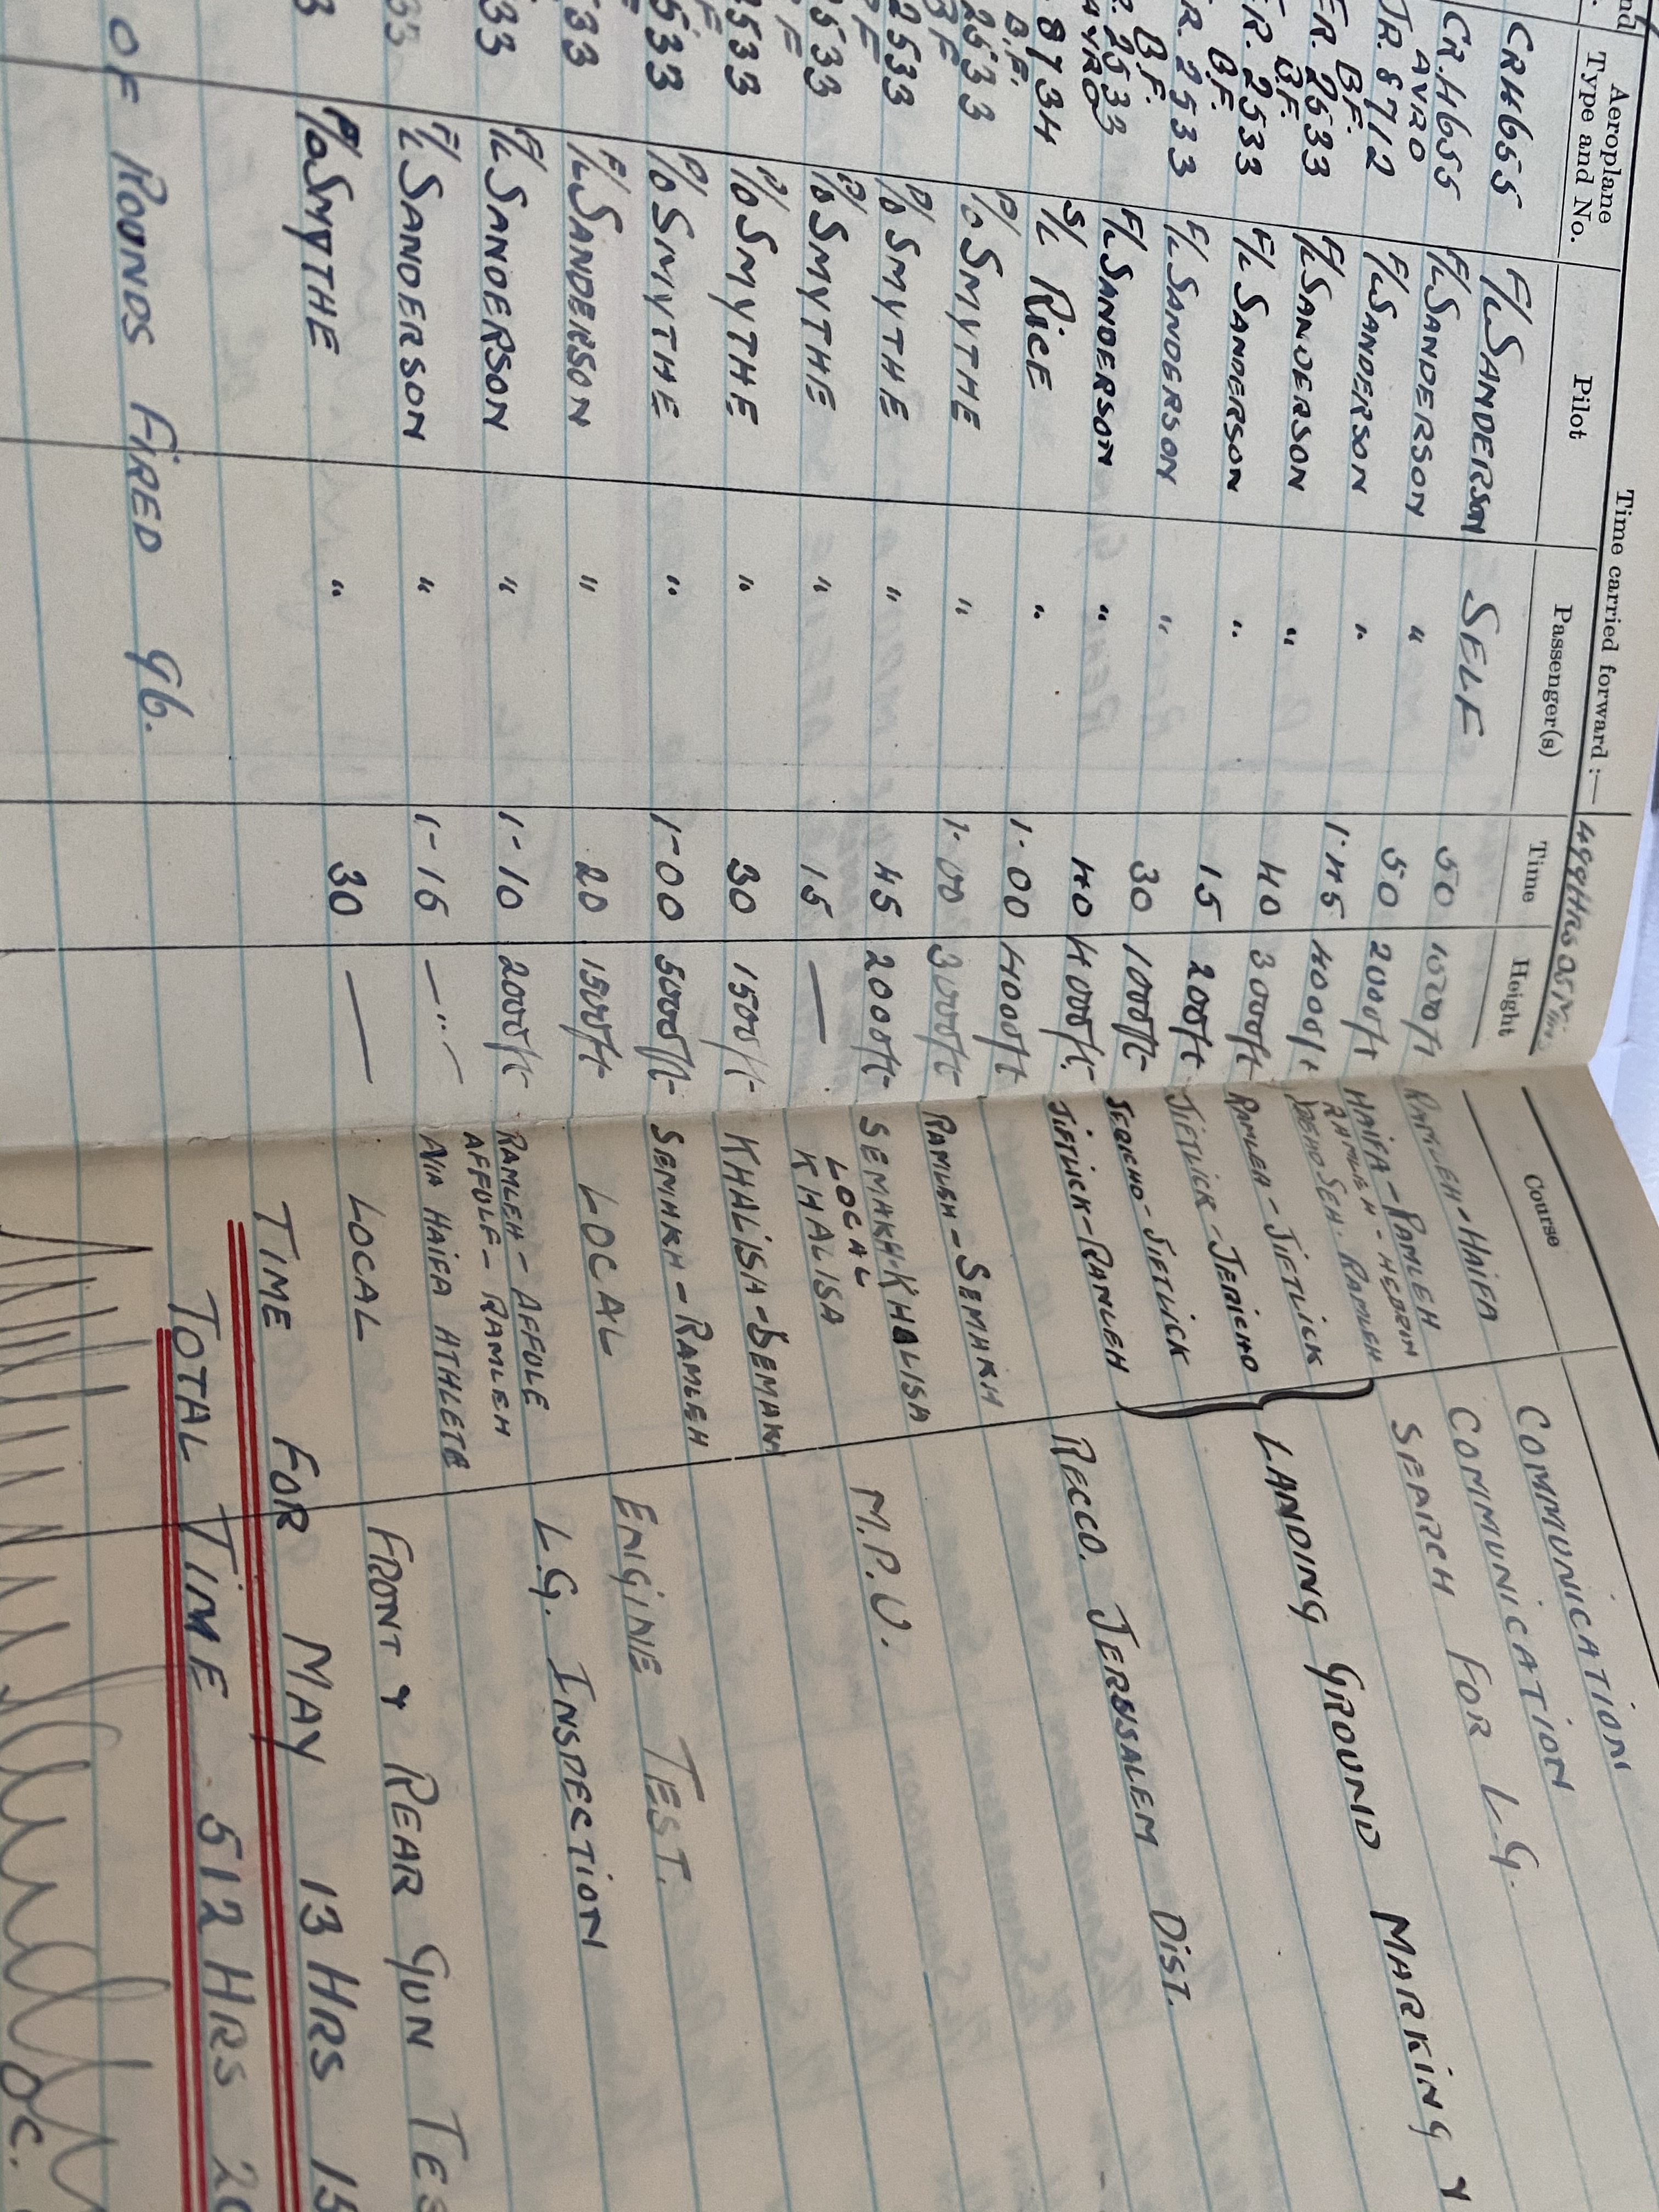 Time carried forward :— 499 Hrs 05 Min
Aeroplane Type and No. Pilot Passenger(s) Time Height Course
CRH655 F/L SANDERSON SELF 50 1000/ft RAMLEH-HAIFA COMMUNICATION
CR.H655 F/L SANDERSON " 50 2000/ft HAIFA-RAMLEH COMMUNICATION
AVRO
JR.8712 F/L SANDERSON " 1.45 4000/ft RAMLEH-HEBRON SEARCH FOR L.G.
RAMLEH
B.F.
ER.2533 F/L SANDERSON " 40 3000/ft RAMLEH-JIFTLICK LANDING GROUND MARKING &
B.F.
ER.2533 F/L SANDERSON " 15 200/ft JIFTLICK-JERICHO
B.F.
R.2533 F/L SANDERSON " 30 1000/ft JERICHO-JIFTLICK
B.F.
R.2533 F/L SANDERSON " 40 4000/ft. JIFTLICK-RAMLEH
AVRO
8734 S/L RICE " 1.00 4000/ft RECCO. JERUSALEM DIST.
B.F.
2533 P/O SMYTHE " 1.00 3000/ft RAMLEH-SEMAKH
B.F.
2533 P/O SMYTHE " 45 2000/ft SEMAKH-KHALISA M.P.U.
F
2533 P/O SMYTHE " 15 — LOCAL KHALISA
F
2533 P/O SMYTHE " 30 1500/ft KHALISA-SEMAKH
F
2533 P/O SMYTHE " 1-00 5000/ft SEMAKH-RAMLEH
533 F/L SANDERSON " 20 1500/ft LOCAL ENGINE TEST.
533 F/L SANDERSON " 1-10 2000/ft RAMLEH-AFFULE L.G. INSPECTION
AFFULE-RAMLEH
533 F/L SANDERSON " 1-15 —"— VIA HAIFA ATHLETE
3 P/O SMYTHE " 30 — LOCAL FRONT & REAR GUN TES
TIME FOR MAY 13 HRS 15
OF ROUNDS FIRED 96. TOTAL TIME 512 HRS 20
OC.